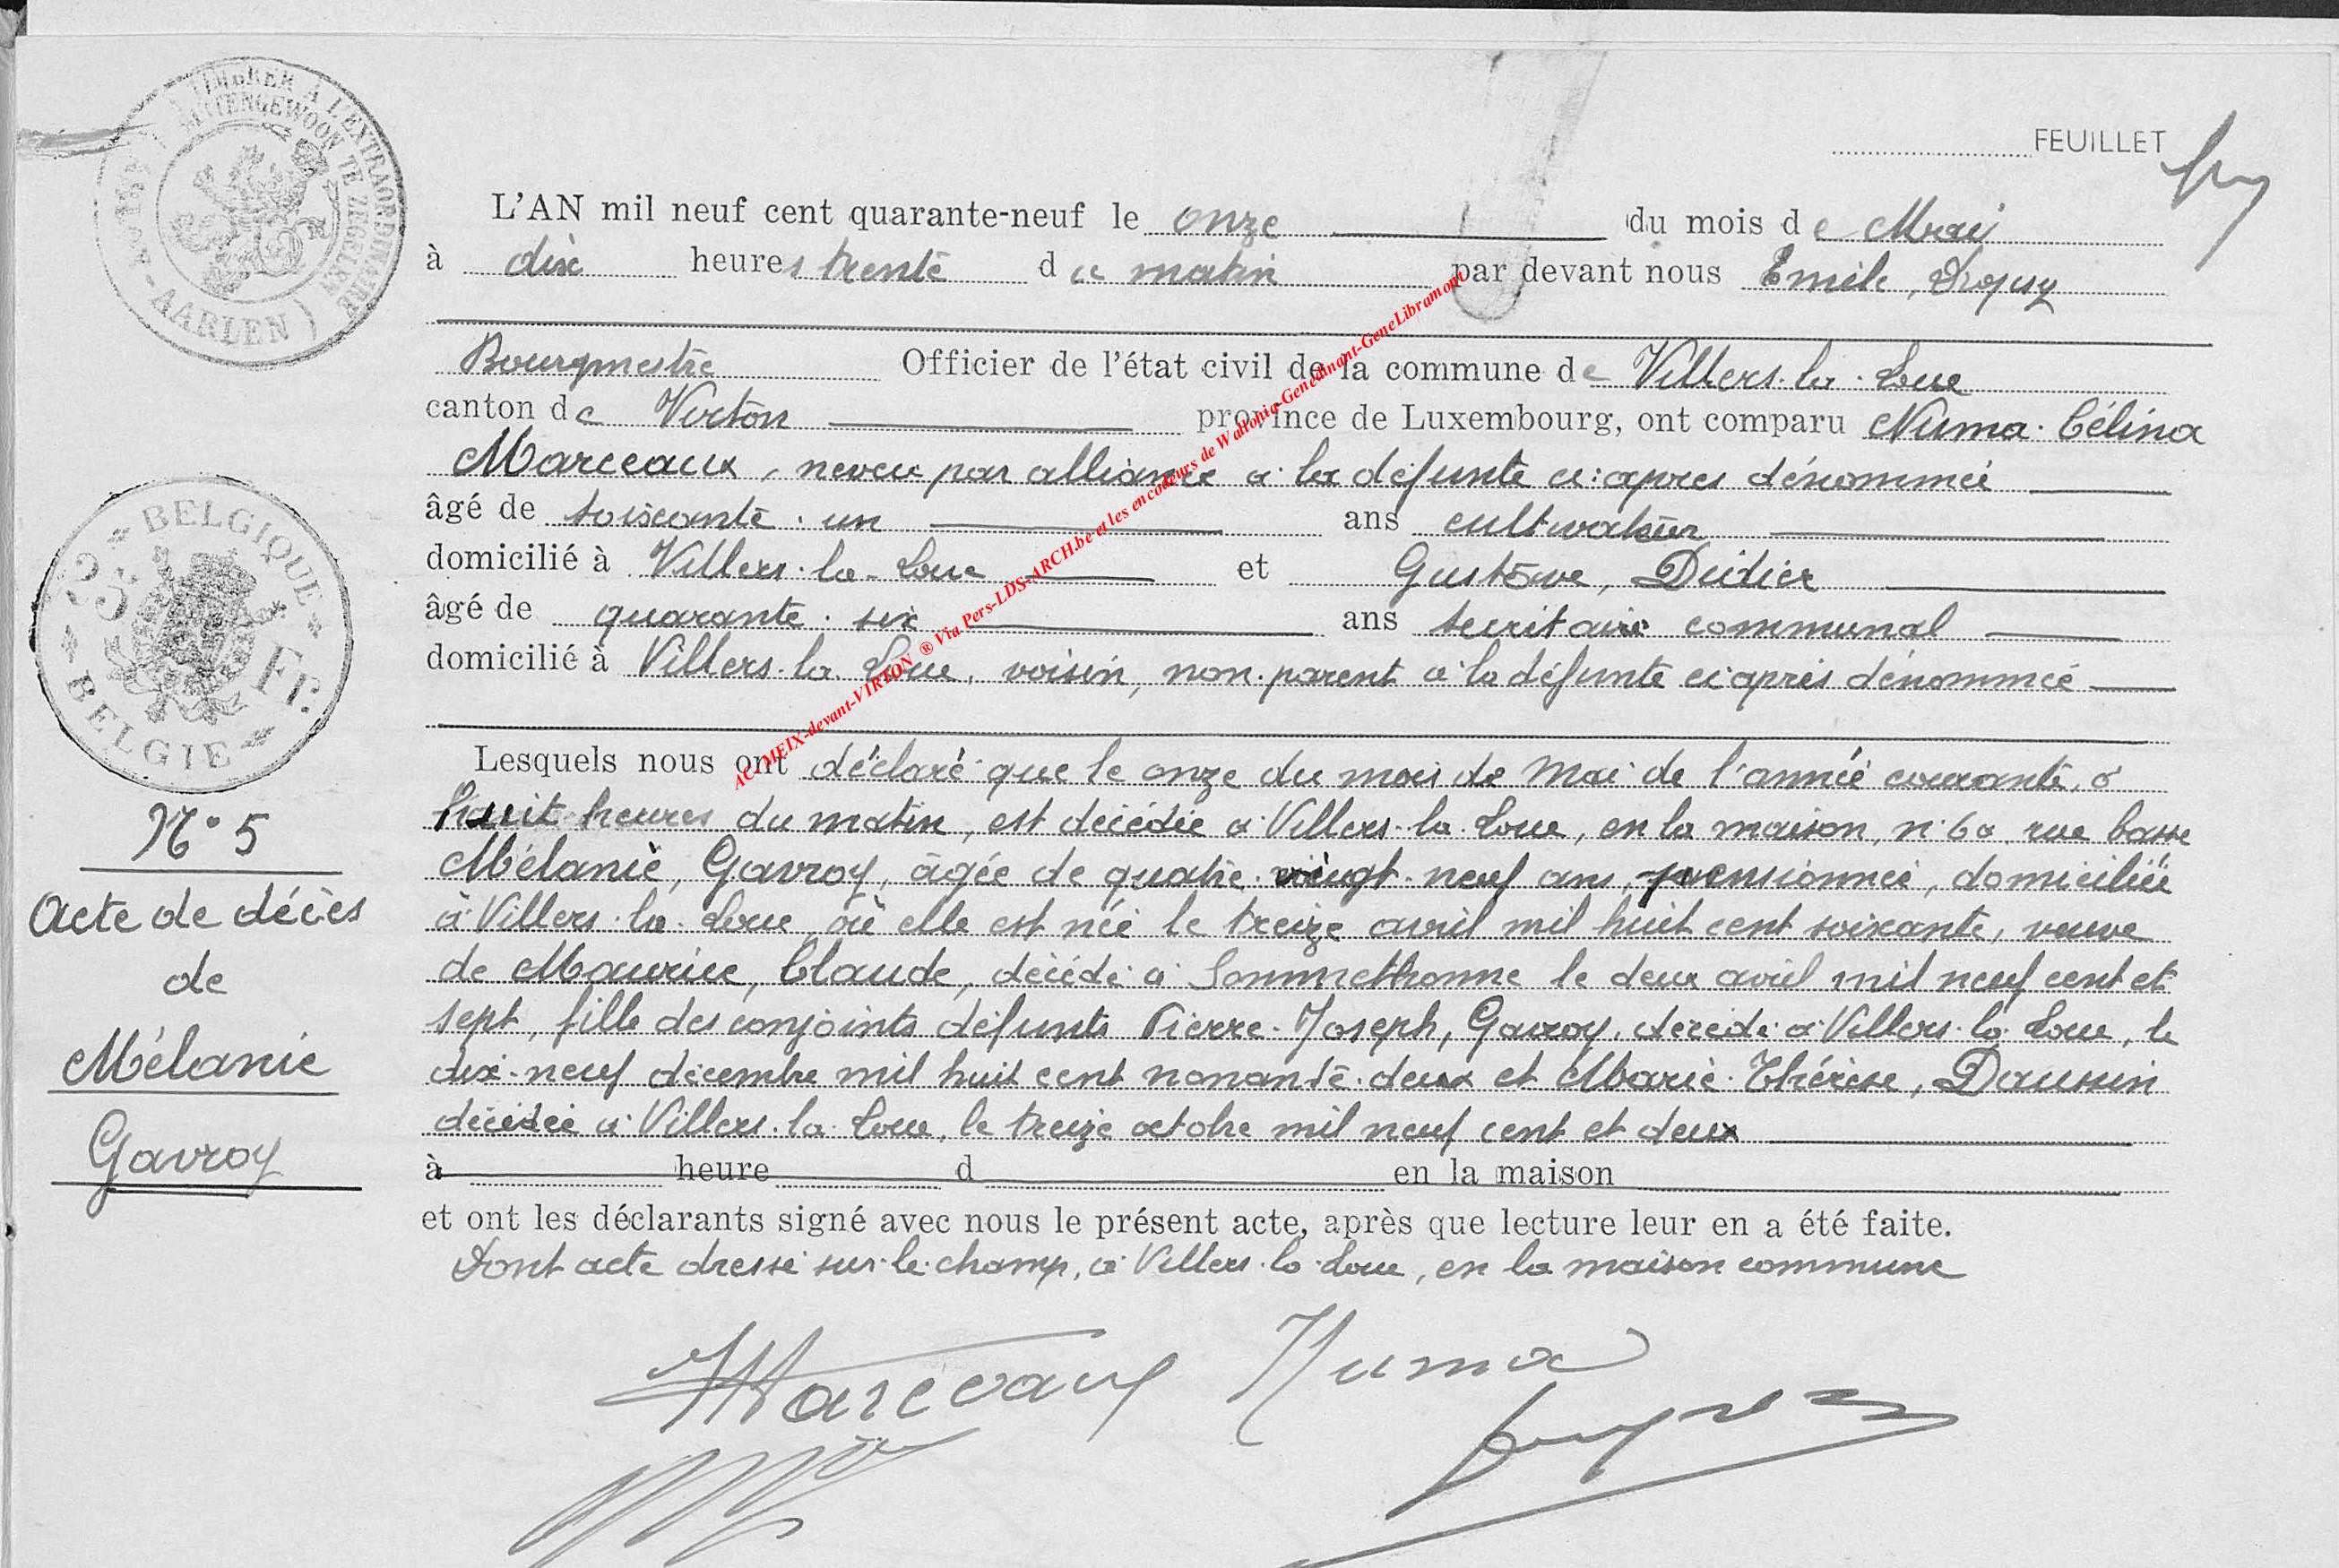 TIMBRER A L'EXTRAORDINAIRE
BUITENGEWOON TE ZEGELEN
ARLON - AARLEN
FEUILLET
L'AN mil neuf cent quarante-neuf le onze du mois de Mai
à dix heures trente du matin par devant nous Emile,
Bourgmestre Officier de l'état civil de la commune de Villers-la-Loue
canton de Virton province de Luxembourg, ont comparu Numa-Célina
Marceaux, neveu par alliance à la défunte ci-après dénommée
âgé de soixante-un ans cultivateur
domicilié à Villers-la-Loue et Gustave, Didier
âgé de quarante-six ans secrétaire communal
domicilié à Villers-la-Loue, voisin, non-parent à la défunte ci-après dénommée
Lesquels nous ont déclaré que le onze du mois de Mai de l'année courante, à
huit heures du matin, est décédée à Villers-la-Loue, en la maison, n° 60 rue basse
Mélanie, Gavroy, âgée de quatre-vingt-neuf ans, pensionnée, domiciliée
à Villers-la-Loue, où elle est née le treize avril mil huit cent soixante, veuve
de Maurice, Claude, décédé à Sommethonne le deux avril mil neuf cent et
sept, fille des conjoints défunts Pierre-Joseph, Gavroy, décédé à Villers-la-Loue, le
dix-neuf décembre mil huit cent nonante-deux et Marie-Thérèse, Daussin
décédée à Villers-la-Loue, le treize octobre mil neuf cent et deux
à heure d en la maison
et ont les déclarants signé avec nous le présent acte, après que lecture leur en a été faite.
Dont acte dressé sur-le-champ, à Villers-la-Loue, en la maison commune
Marceaux Numa
BELGIQUE
25 Fr.
BELGIE
N° 5
Acte de décès
de
Mélanie
Gavroy
AC-MEIX-devant-VIRTON ® Via Pers-LDS-ARCH.be et les encodeurs de Wallonia-Genedinant-GeneLibramont